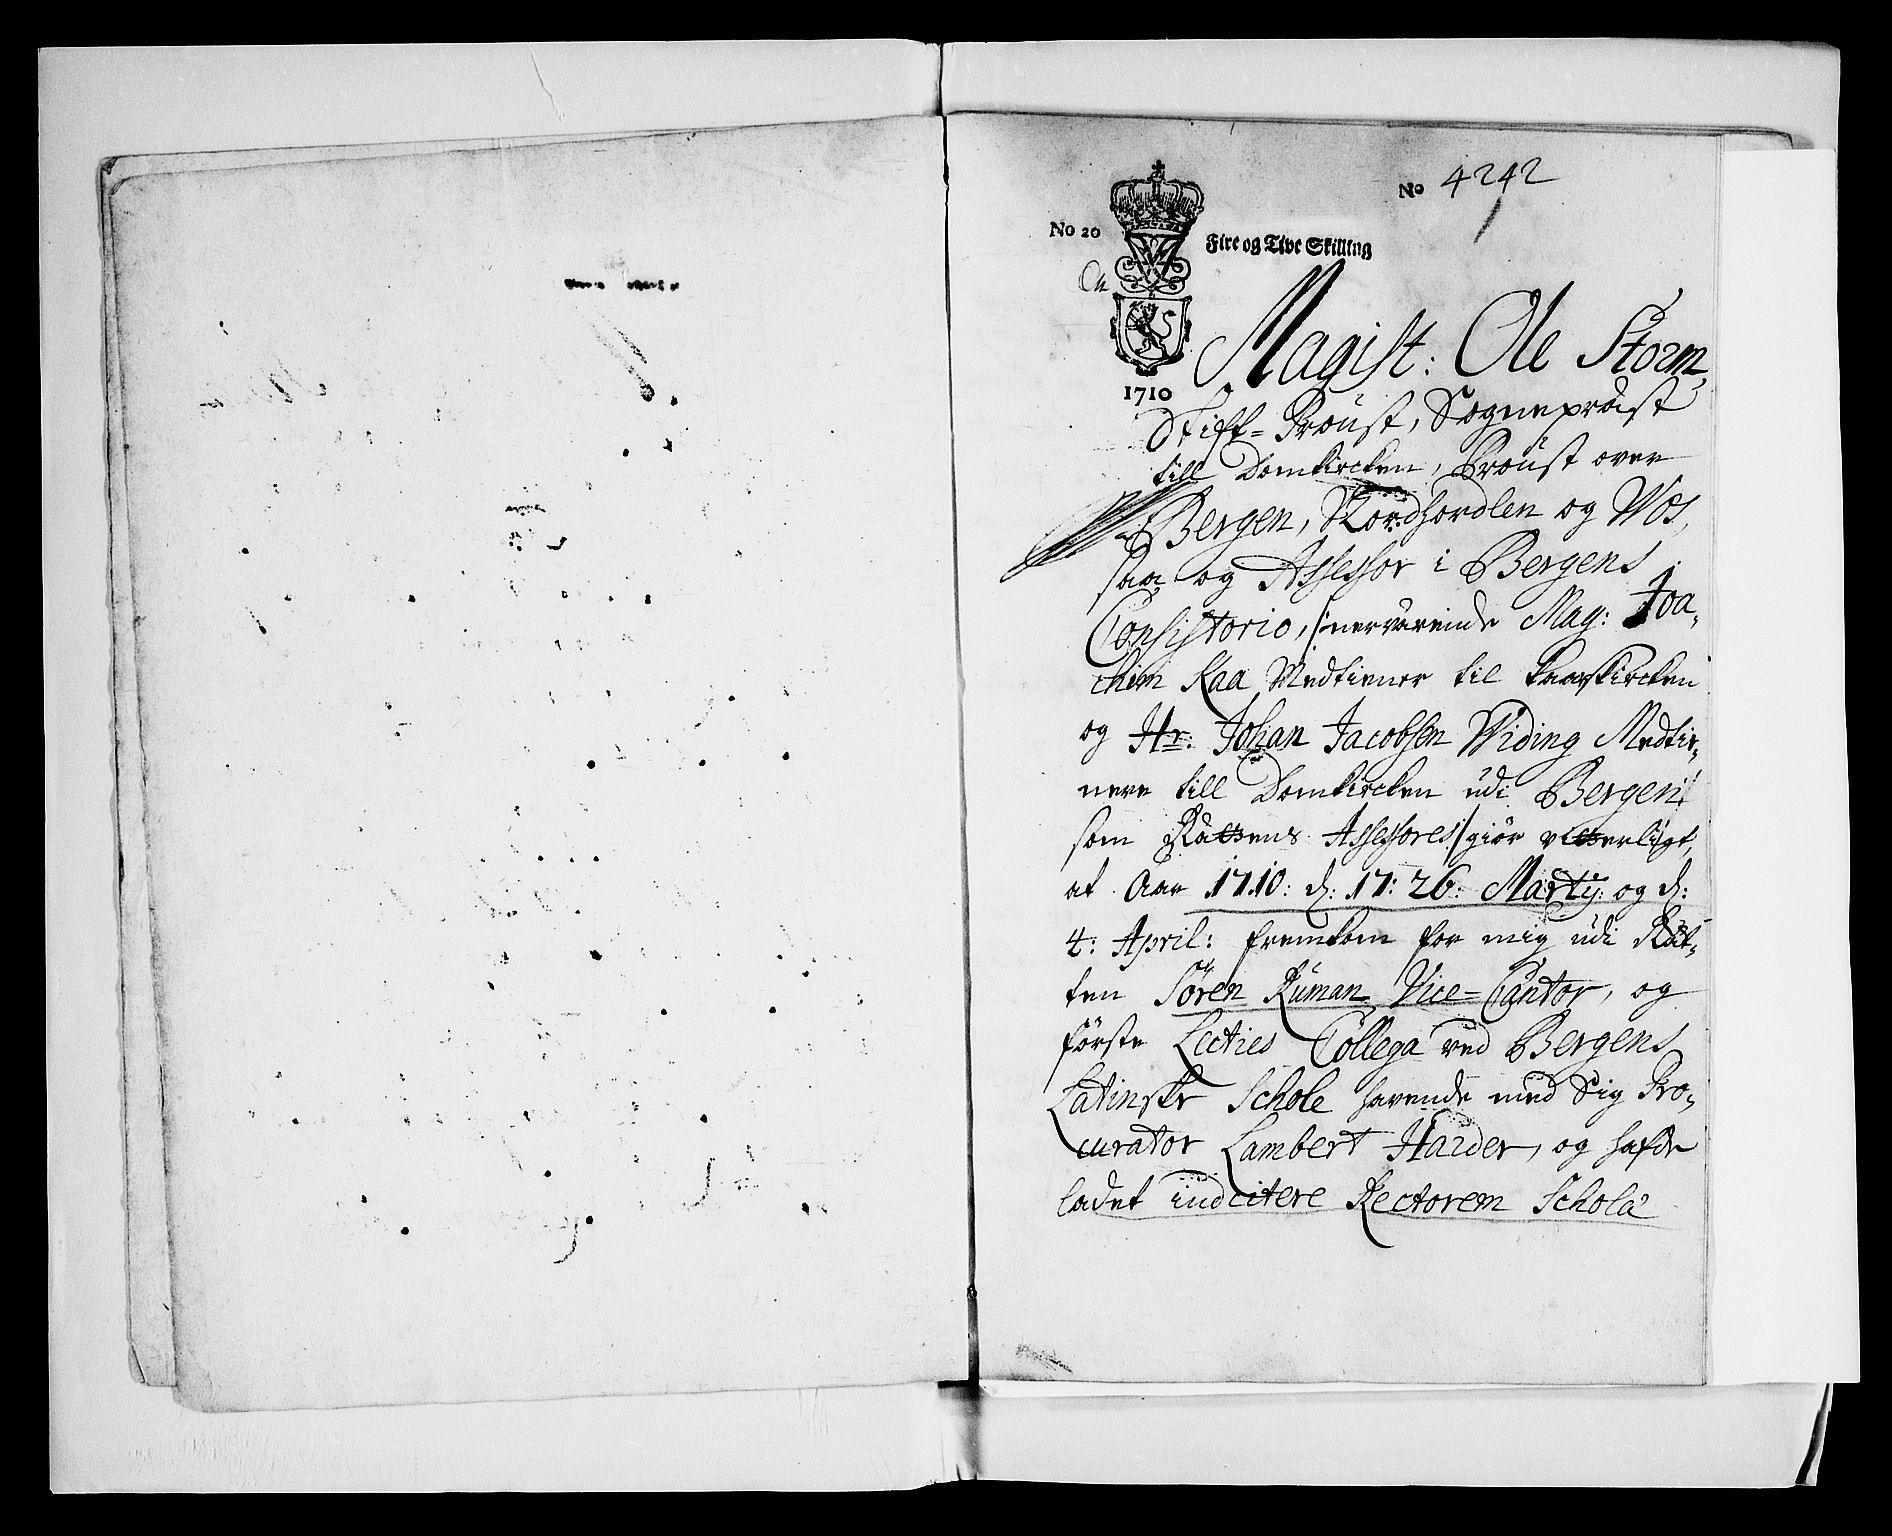 No 4242
No 20
Fire og Tive Skilling
1710
Magist: Ole Storm,
Stift-Proust, Sognepræst
till Domkircken, Proust over
Bergen, Nordhordlen og Wos,
saa og Assessor i Bergens
Consistorio, /:nerværende Mag: Joa,
chim Kaa Medtiener til Kaarskircken
og Hr: Johan Jacobsen Widing Medtie,
nere till Domkircken udi Bergen
som Rættens Assessores/ giør vitterligt,
at Aar 1710: d: 17: 26: Martij: og d:
4: April: fremkom for mig udi Ræt,
ten Sören Ruman Vice-Cantor, og
første Lecties Collega ved Bergens
Latinske Schole havende med Sig Pro,
curator Lambert Harder, og hafde
ladet indcitere Rectorem Scholæ